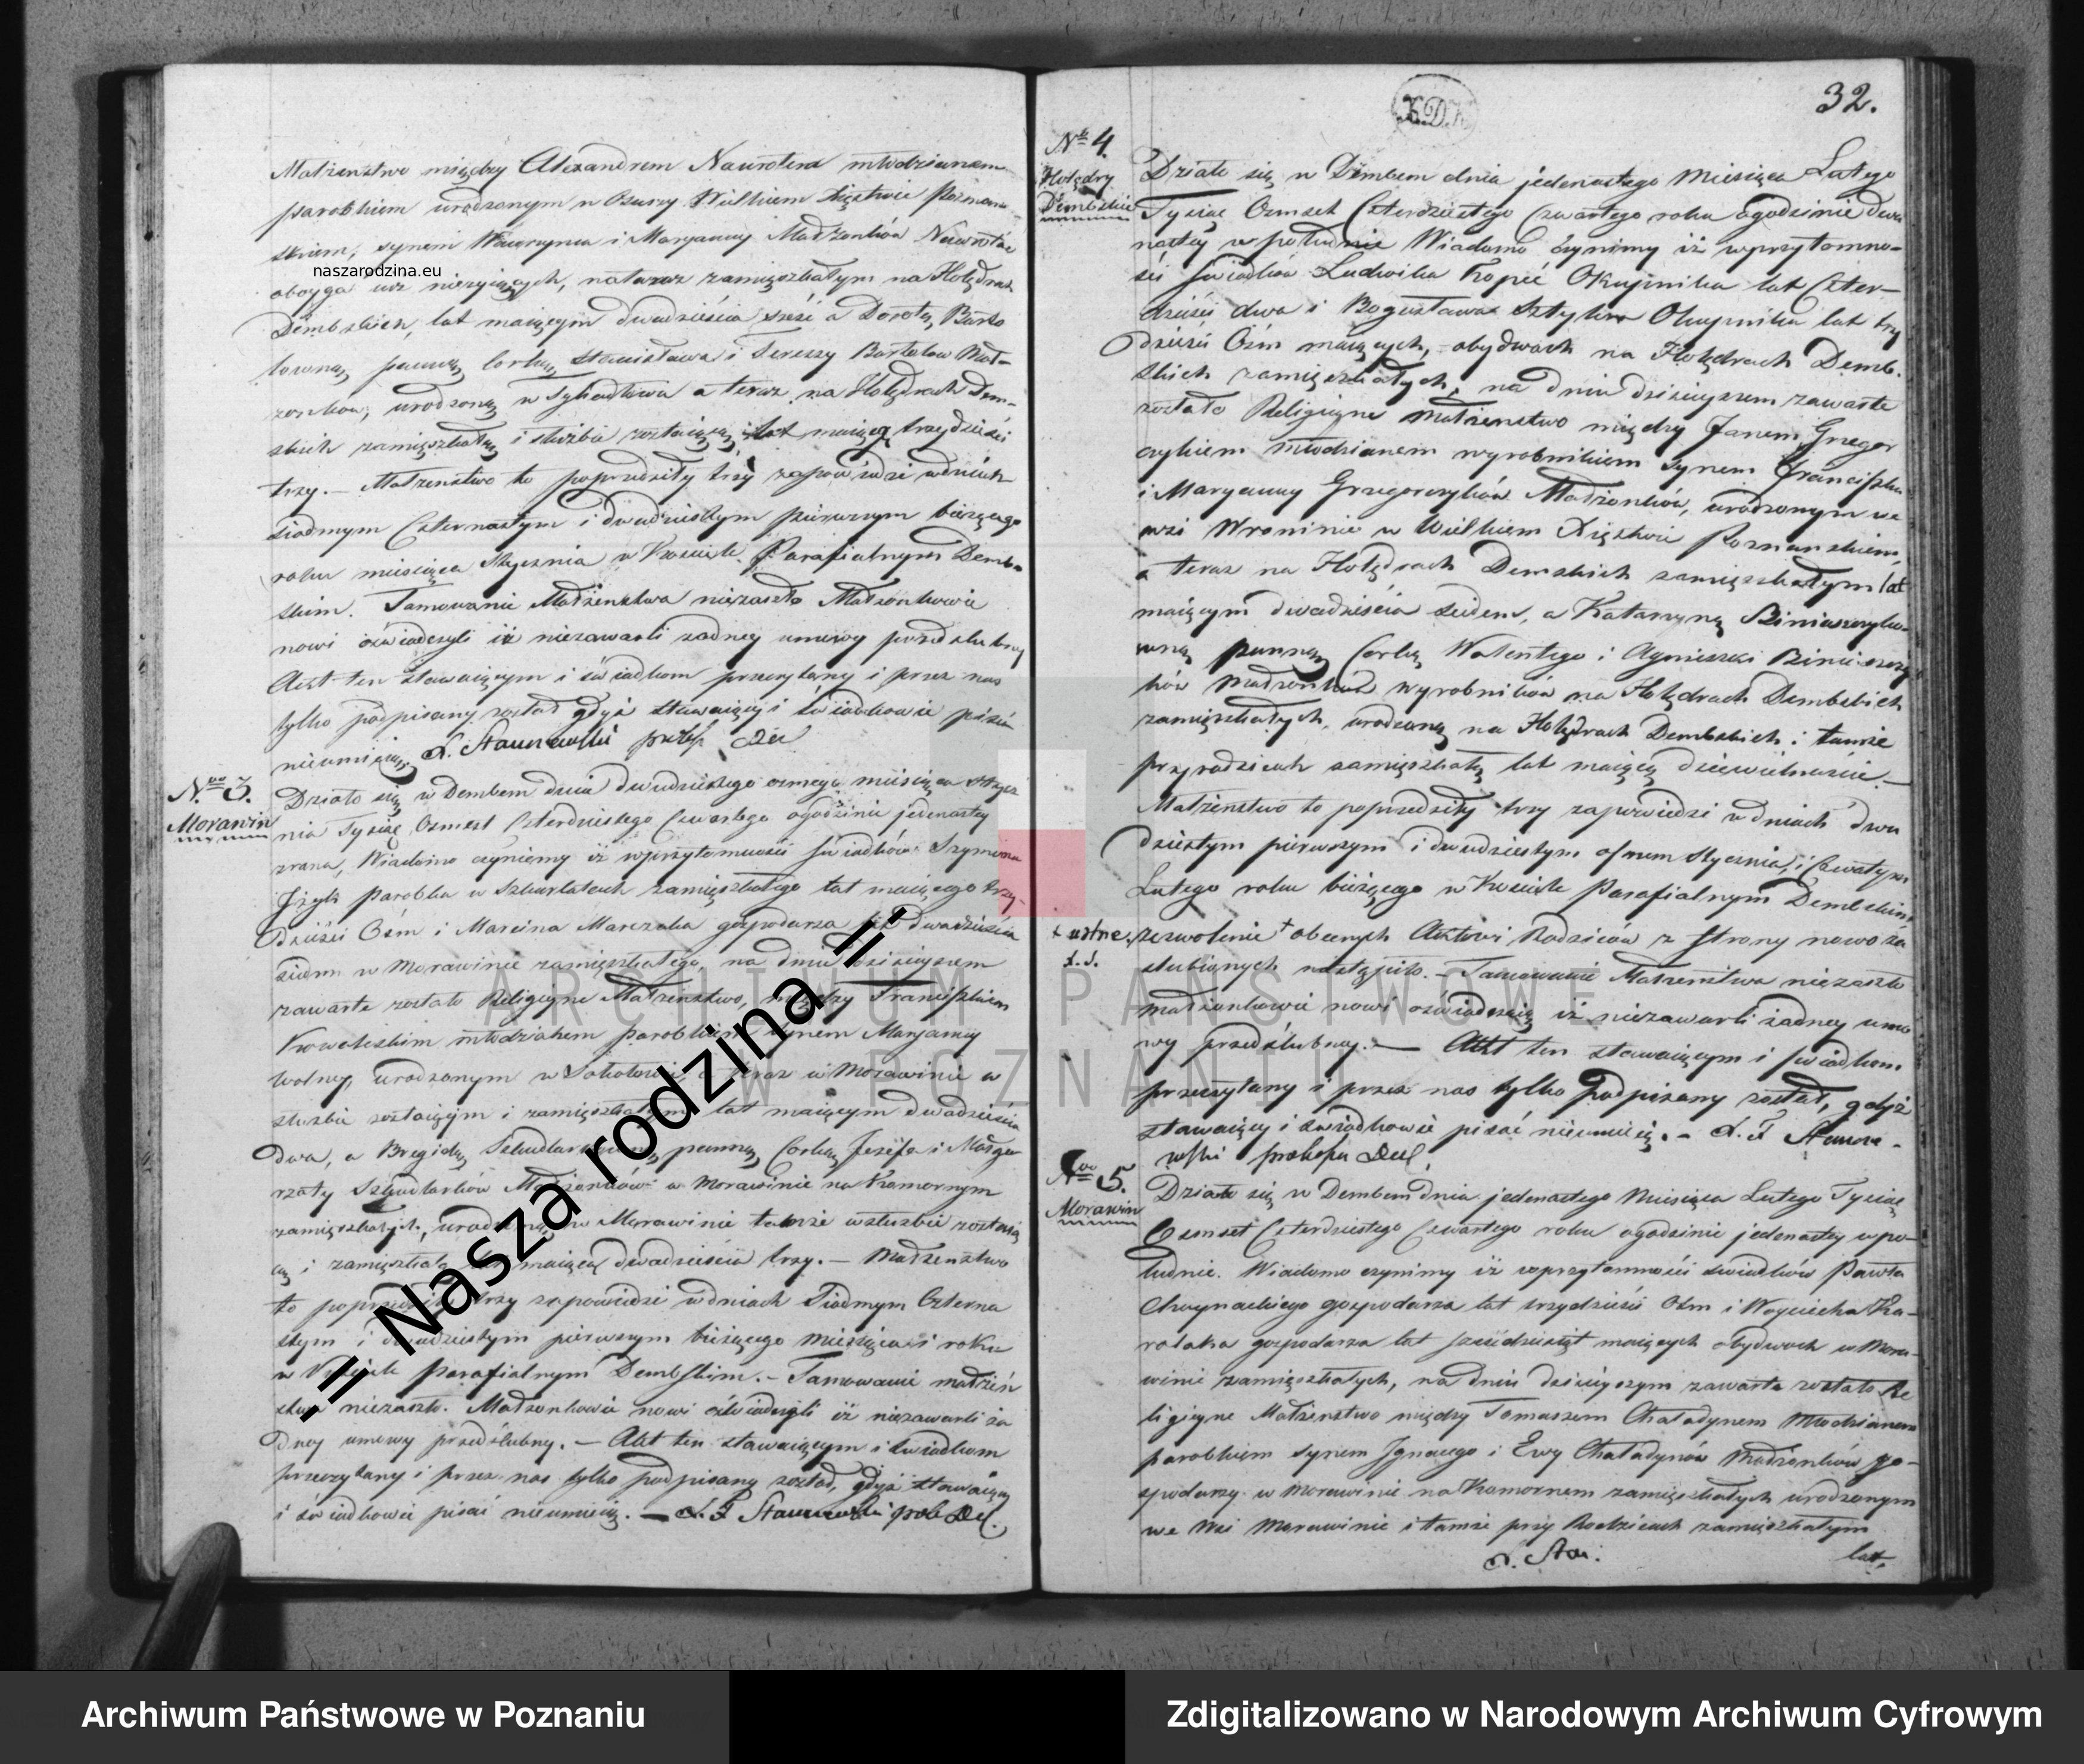 Małżeństwo między Alexandrem Nawrotem młodzianem
parobkiem urodzonym w Wielkiem Xięstwie Poznan-
skiem, synem Wawrzyna i Maryanny Małżonków Nawrotów
naszarodzina.eu
oboyga iuż nieżyiących, na teraz zamięszkałym na Holędrach
Dembskich, lat maiącym dwadzieścia sześć a Dorotą Barto
łowną panną corką Stanisława i Tereszy Bartołow Mał-
zonków, urodzoną w a teraz na Holędrach Dem-
skich zamięszkałą i służbie zostaiącą lat maiącą trzydzieści
trzy. — Małżenstwo to poprzedziły trzy zapowiedzi w dniach
siodmym Czternastym i dwudziestym pierwszym bieżącego
roku miesiąca Stycznia w Kosciele Parafialnym Demb-
skim. Tamowanie Małżenstwa niezaszło Małżonkowie
nowi oświadczyli iż niezawarli żadney umowy przedslubney
Akt ten stawaiącym i świadkom przeczytany i przez nas
tylko podpisany został gdyż stawaiący i świadkowie pisać
nieumieią.
No 3.
Morawin
Działo się w Dembem dnia dwudziestego osmego miesiąca Stycz
nia Tysiąc Osmset Czterdziestego Czwartego o godzinie jedenastey
zrana, Wiadomo czyniemy iż w przytomności świadków Szymona
parobka w zamięszkałego lat maiącego trzy-
dzieści Ośm i Marcina Marczaka gospodarza lat dwadzieścia
siedm w Morawinie zamięszkałego, na dniu dzisieyszem
zawarte zostało Religiyne Małżenstwo, między Franciszkiem
Kowalskim młodzianem parobkiem synem Maryanny
wolney, urodzonym w a teraz w Morawinie w
służbie zostaiącym i zamięszkałym lat maiącym dwadzieścia
dwa, a Brygidą panną Corką Jozefa i Małgo
rzaty Małżonków w Morawinie na Komornym
zamięszkałych, urodzoną w Morawinie tamże w służbie zostaią
cą i zamięszkałą lat maiącą dwadzieścia trzy. — Małżenstwo
to poprzedziły trzy zapowiedzi w dniach Siodmym Czterna
stym i dwudziestym pierwszym bieżącego Miesiąca i roku
w Kosciele Parafialnym Dembskim. — Tamowanie małżeń
stwa niezaszło. Małżonkowie nowi oświadczyli iż niezawarli ża
dney umowy przedślubney. — Akt ten stawaiącym i świadkom
przeczytany i przez nas tylko podpisany został, gdyż stawaiący
i świadkowie pisać nieumieią. —
32.
K.D.K
No 4.
Holędry
Dembskie
Działo się w Dembem dnia jedenastego Miesiąca Lutego
Tysiąc Osmset Czterdziestego Czwartego roku o godzinie dwu
nastey w południe Wiadomo czynimy iż w przytomno-
ści świadków Ludwika Kopeć Okupnika lat Czter-
dzieści dwa i Bogusława Okupnika lat trzy
dzieści Ośm maiących, obydwóch na Holędrach Demb-
skich zamięszkałych, na dniu dzisieyszem zawarte
zostało Religiyne małżenstwo między Janem Gregor
czykiem młodzianem wyrobnikiem synem Franciszka
i Maryanny Grzegorczyków Małżonków, urodzonym we
wsi Wroninie w Wielkiem Xięstwie Poznanskiem,
a teraz na Holędrach Demskich zamięszkałym lat
maiącym dwadzieścia siedem, a Katarzyną Biniaszczykó-
wną panną Corką Walentego i Agnieszki Biniaszczy
ków małżonków wyrobników na Holędrach Dembskich
zamięszkałych, urodzoną na Holędrach Dembskich i tamże
przy rodzicach zamięszkałą lat maiącą dziewietnaście —
Małżenstwo to poprzedziły trzy zapowiedzi w dniach dwu
dziestym pierwszym i dwudziestym osmem Stycznia, i Czwartym
Lutego roku bieżącego w Kosciele Parafialnym Dembskim,
+ ustne.
zezwolenie + obecnych Aktowi Rodziców z strony nowo za
slubionych nastąpiło. — Tamowanie Małżenstwa niezaszło
małżonkowie nowi oświadczaią iż niezawarli żadney umo
wy przedślubney. — Akt ten stawaiącym i świadkom
przeczytany i przez nas tylko podpisany został, gdyż
stawaiący i świadkowie pisać nieumieią. —
No 5.
Morawin
Działo się w Dembem dnia jedenastego Miesiąca Lutego Tysiąc
Osmset Czterdziestego Czwartego roku o godzinie jedenastey w po-
łudnie. Wiadomo czynimy iż w przytomności świadków Pawła
Chwynackiego gospodarza lat trzydzieści Ośm i Woyciecha Ka-
rolaka gospodarza lat sześćdziesiąt maiących obydwóch w Mora-
winie zamięszkałych, na dniu dzisieyszym zawarte zostało Re
ligiyne Małżenstwo między Tomaszem Chaładynem Młodzianem
parobkiem synem Ignacego i Ewy Chaładynów Małżonków go-
spodarzy w Morawinie na Komornem zamięszkałych urodzonym
we Wsi Morawinie i tamże przy Rodzicach zamięszkałym
lat.
-= Nasza rodzina =-
ARCHIWUM PAŃSTWOWE
W POZNANIU
Archiwum Państwowe w Poznaniu
Zdigitalizowano w Narodowym Archiwum Cyfrowym